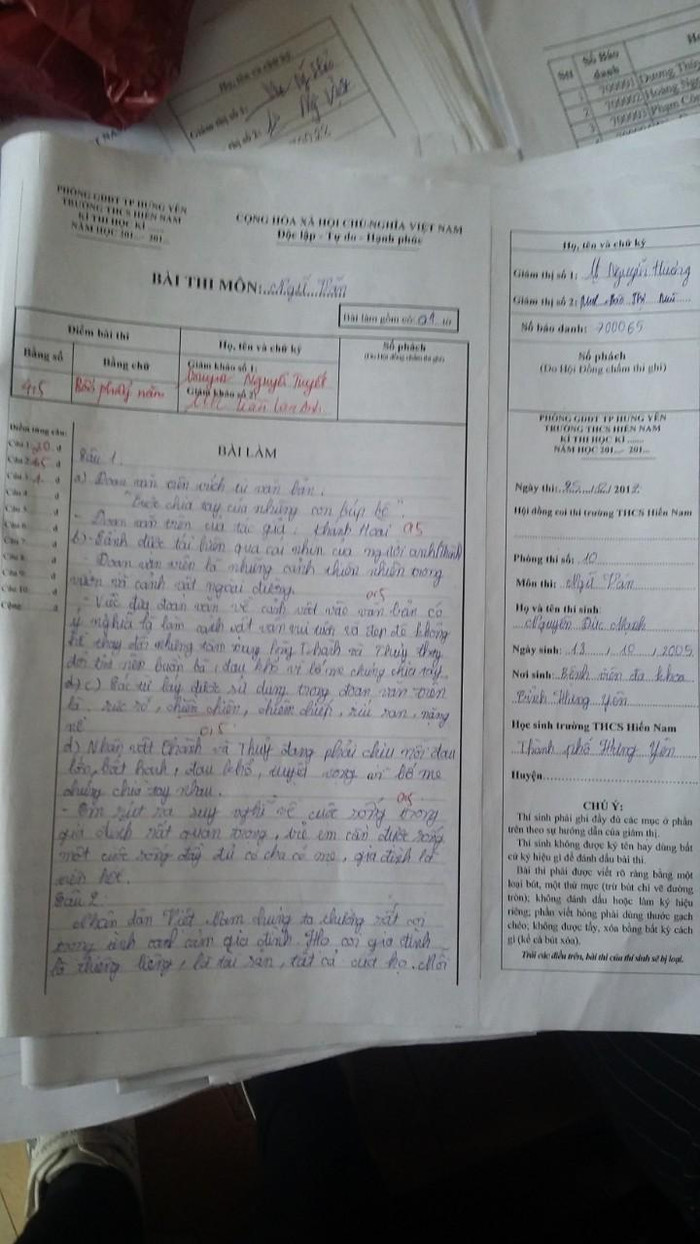 Họ, tên và chữ ký
Giám thị số 1:
Số Báo danh
1 700001 Dương
2 700002 Hoàng
3 700003 Phạm
PHÒNG GDĐT TP HƯNG YÊN
TRƯỜNG THCS HIẾN NAM
KÌ THI HỌC KÌ ......
NĂM HỌC 201... - 201...
CỘNG HÒA XÃ HỘI CHỦ NGHĨA VIỆT NAM
Độc lập - Tự do - Hạnh phúc
BÀI THI MÔN: Ngữ Văn
Bài làm gồm có: 01 tờ
Điểm bài thi
Họ, tên và chữ ký
Số phách
(Do Hội đồng chấm thi ghi)
Bằng số
Bằng chữ
Giám khảo số 1:
Nguyễn Tuyết
4,5
Bốn phẩy năm
Giám khảo số 2:
Trần Lan Anh
Điểm từng câu:
Câu 1: 2,0 đ
Câu 2: 1,5 đ
Câu 3: 1 đ
Câu 4: đ
Câu 5: đ
Câu 6: đ
Câu 7: đ
Câu 8: đ
Câu 9: đ
Câu 10: đ
Cộng: đ
BÀI LÀM
Câu 1.
a) Đoạn văn trên trích từ văn bản.
"Cuộc chia tay của những con búp bê".
- Đoạn văn trên của tác giả: Khánh Hoài 0,5
b) - Cảnh được tái hiện qua cái nhìn của người anh (Thành)
Đoạn văn trên là những cảnh thiên nhiên trong
vườn và cảnh vật ngoài đường. 0,5
- Việc đoạn văn về cảnh vật vào văn bản có
ý nghĩa là làm cảnh vật vẫn vui tươi và đẹp đẽ không
hề thay đổi nhưng tâm trạng Thành và Thuỷ thay
đổi trở nên buồn bã, đau khổ vì bố mẹ chúng chia tay.
d) c) Các từ láy được sử dụng trong đoạn văn trên
là: rực rỡ, chiền chiện, chiêm chiếp, ríu ran, nặng
nề 0,5
d) Nhân vật Thành và Thuỷ đang phải chịu nỗi đau
lớn, bất hạnh, đau khổ, tuyệt vọng vì bố mẹ
chúng chia tay nhau. 0,5
- Em rút ra suy nghĩ về cuộc sống trong
gia đình rất quan trọng, trẻ em cần được sống
một cuộc sống đầy đủ có cha có mẹ, gia đình là
trên hết.
Câu 2.
Nhân dân Việt Nam chúng ta thường rất coi
trọng tình cảm gia đình. Họ coi gia đình
là thiêng liêng, là tài sản, tất cả của họ. Mỗi
Họ, tên và chữ ký
Giám thị số 1: Nguyễn Hương
Giám thị số 2:
Số báo danh: 700065
Số phách
(Do Hội Đồng chấm thi ghi)
PHÒNG GDĐT TP HƯNG YÊN
TRƯỜNG THCS HIẾN NAM
KÌ THI HỌC KÌ ......
NĂM HỌC 201... - 201...
Ngày thi: 25/12/2017
Hội đồng coi thi trường THCS Hiến Nam
Phòng thi số: 10
Môn thi: Ngữ Văn
Họ và tên thí sinh:
Nguyễn Đức Mạnh
Ngày sinh: 13 / 10 / 2005
Nơi sinh: Bệnh viện đa khoa
tỉnh Hưng Yên
Học sinh trường THCS Hiến Nam
Thành phố Hưng Yên
Huyện
CHÚ Ý:
Thí sinh phải ghi đầy đủ các mục ở phần
trên theo sự hướng dẫn của giám thị.
Thí sinh không được ký tên hay dùng bất
cứ ký hiệu gì để đánh dấu bài thi.
Bài thi phải được viết rõ ràng bằng một
loại bút, một thứ mực (trừ bút chì vẽ đường
tròn); không đánh dấu hoặc làm ký hiệu
riêng; phần viết hỏng phải dùng thước gạch
chéo; không được tẩy, xóa bằng bất kỳ cách
gì (kể cả bút xóa).
Trái các điều trên, bài thi của thí sinh sẽ bị loại.